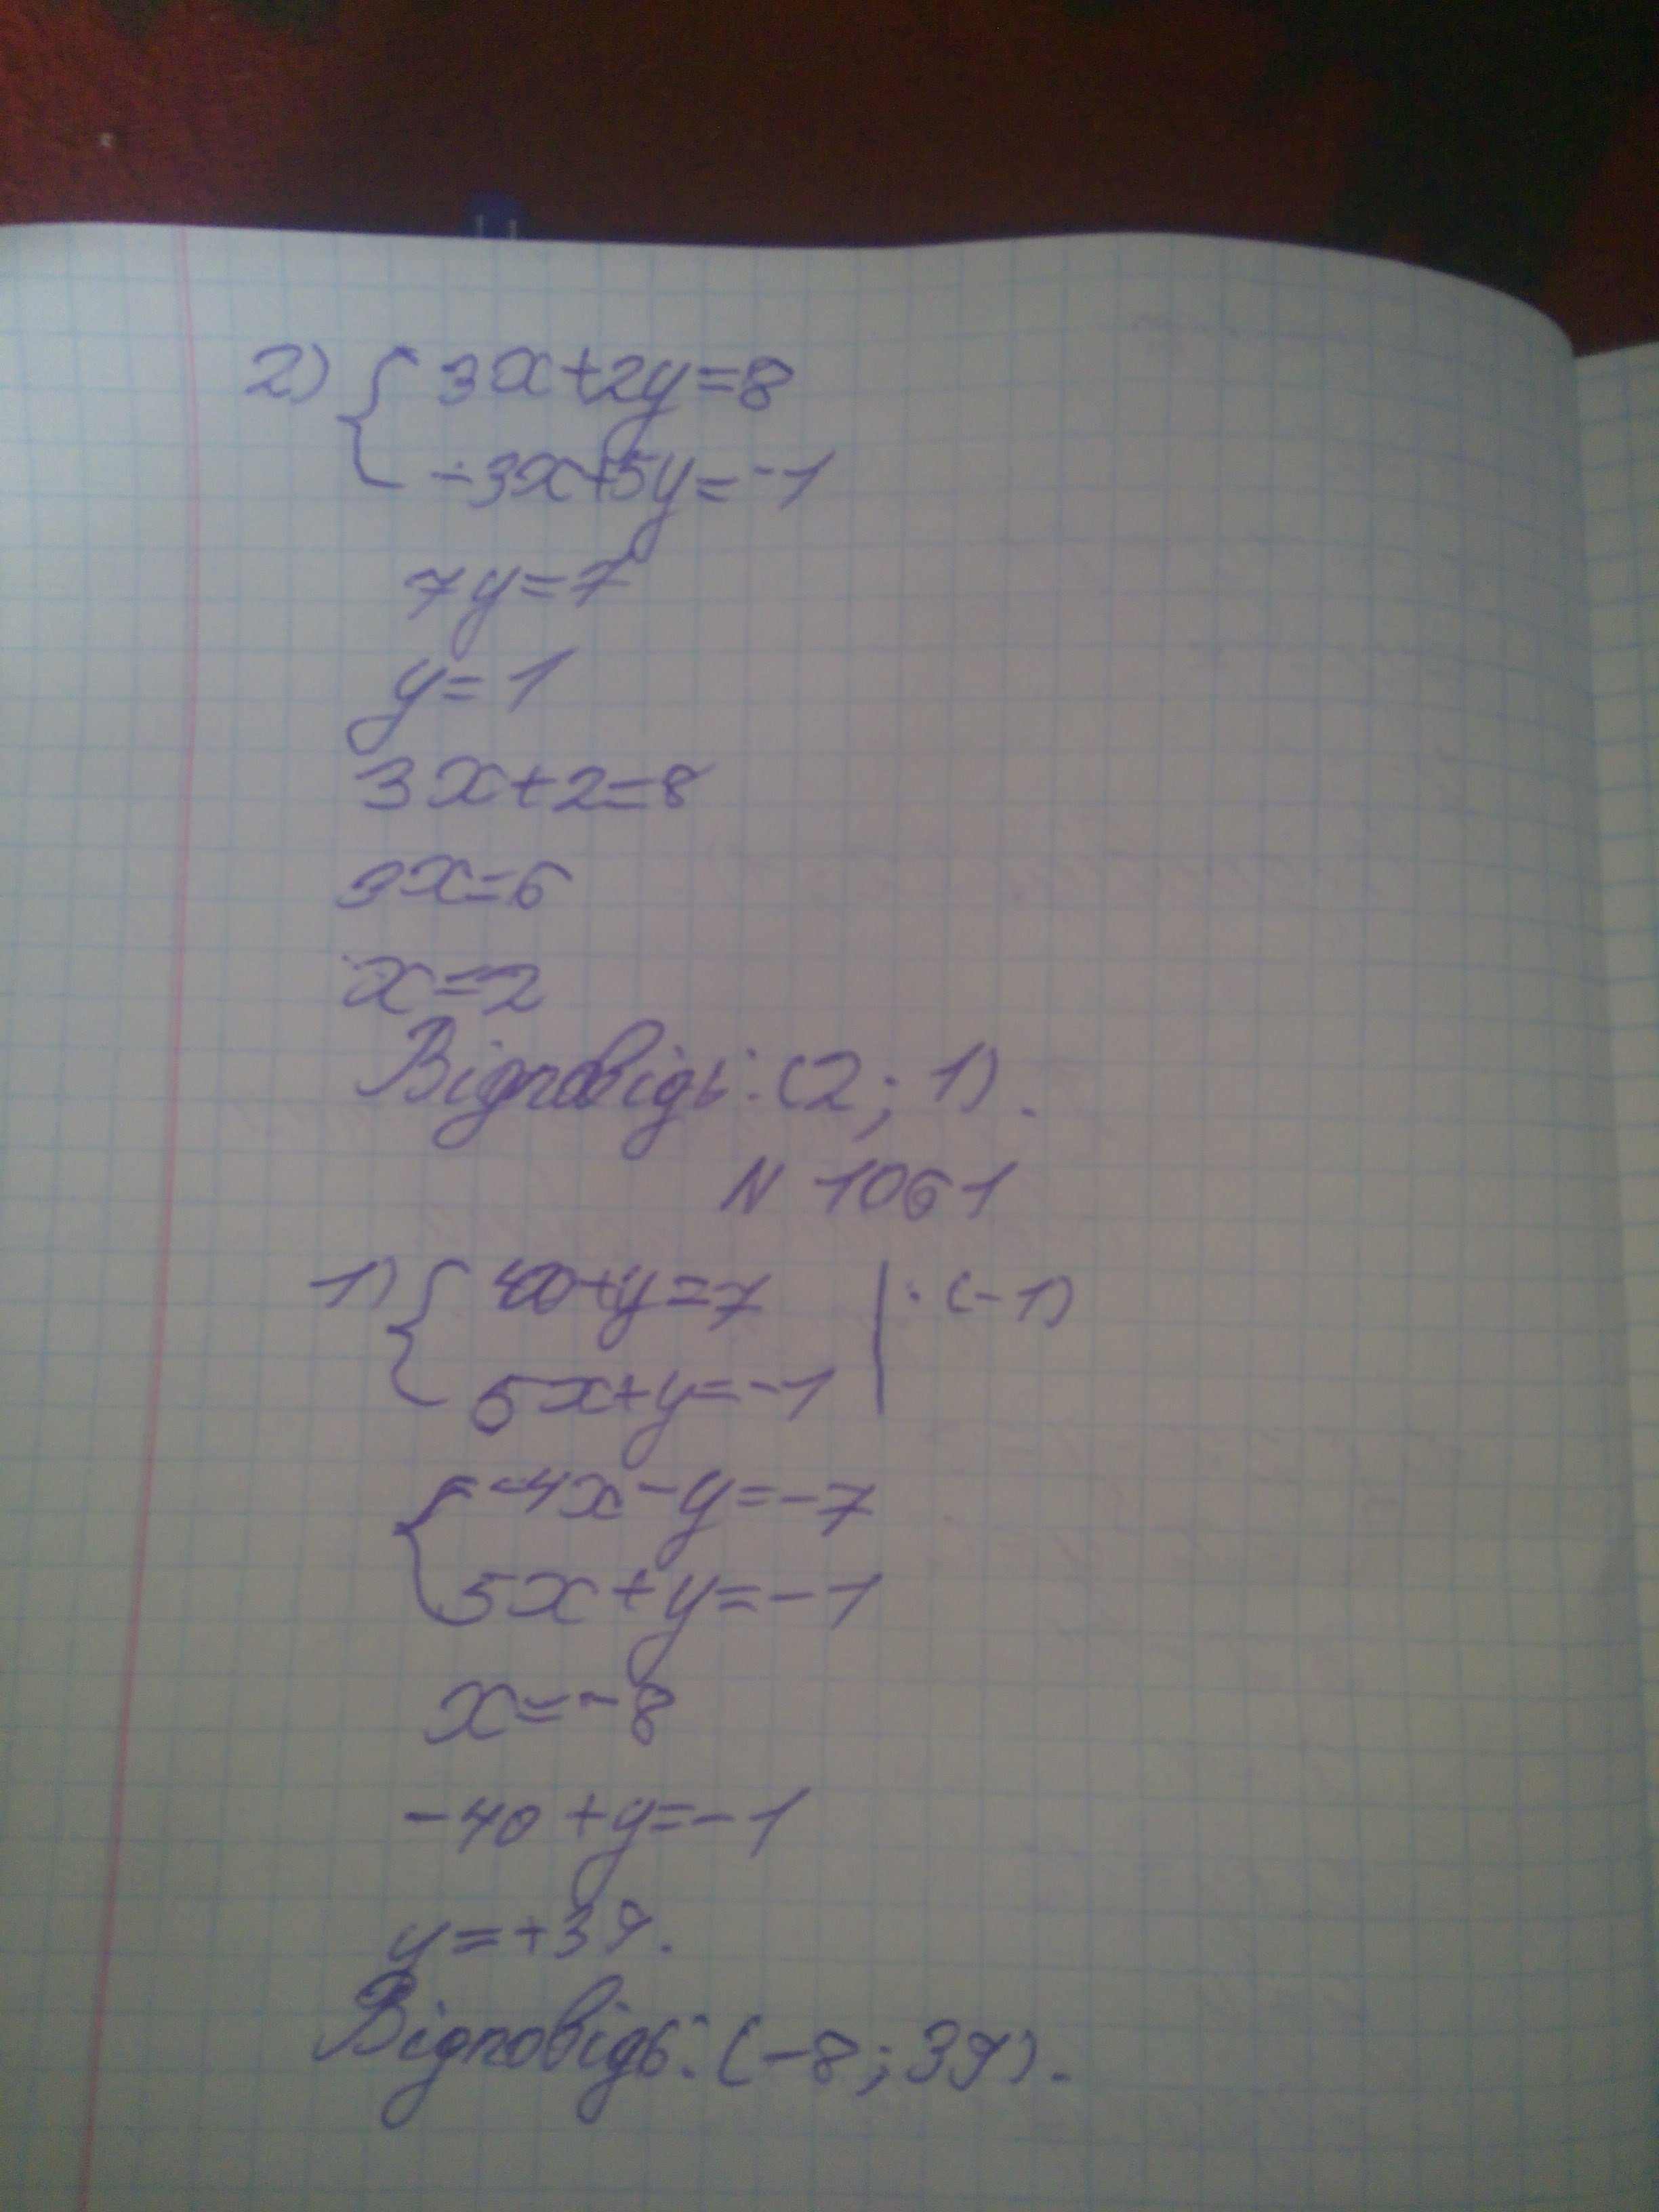 2) { 3x+2y=8
-3x+5y=-1
7y=7
y=1
3x+2=8
3x=6
x=2
Відповідь: (2; 1).
N 1061
1) { 4x+y=7 | · (-1)
5x+y=-1
{ -4x-y=-7
5x+y=-1
x=-8
-40+y=-1
y=+39.
Відповідь: (-8; 39).